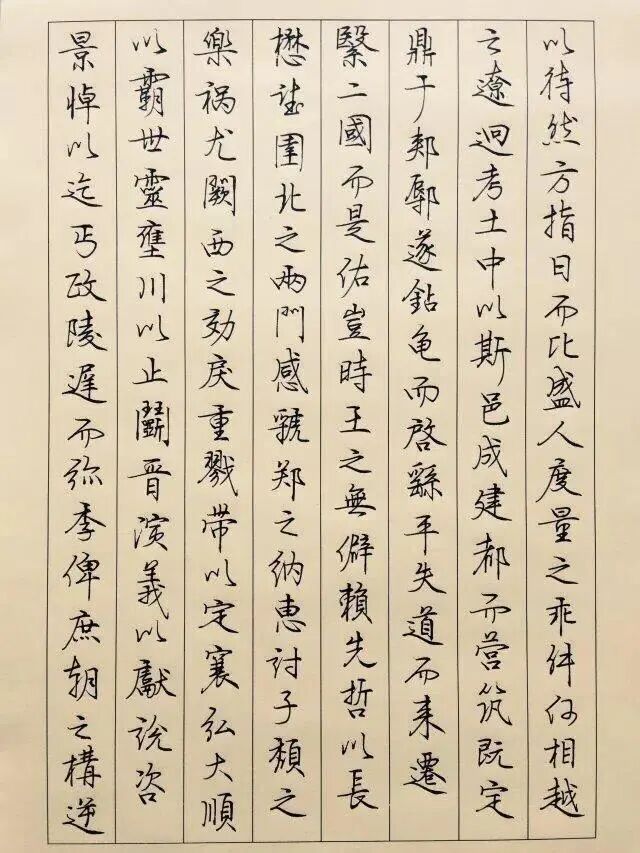 以待然方指日而比盛人度量之乖舛何相越
之遼迥考土中以斯邑成建都而营筑既定
鼎于郏鄏遂鉆龟而啓繇平失道而来遷
繄二國而是佑豈時王之無僻賴先哲以長
懋望圉北之兩門感虢郑之纳惠討子颓之
樂祸尤闕西之効戾重戮带以定襄弘大順
以霸世靈壅川以止鬭晋演義以獻説咨
景悼以迄丐政陵遲而弥季俾庶朝之構逆